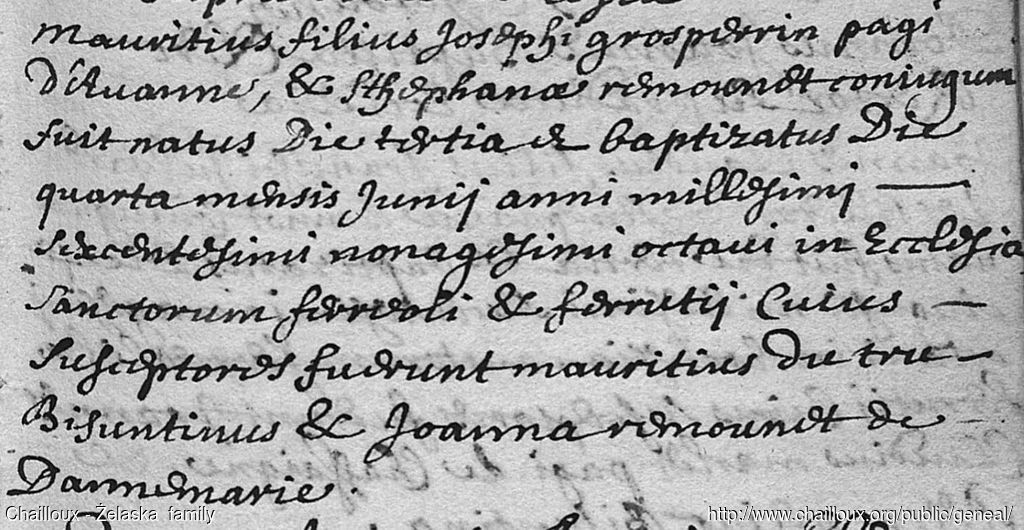 Mauritius filius Josephi grosperrin pagi
D'Avanne, & Sthephanæ remounet coniugum
fuit natus Die tertia & baptizatus Die
quarta mensis Junij anni millesimi —
sexcentesimi nonagesimi octavi in Ecclesia
Sanctorum ferreoli & ferrutij Cuius —
Susceptores fuerunt mauritius du tru —
Bisuntinus & Joanna remounet de
Dannemarie.
Chailloux - Żelaska family
http://www.chailloux.org/public/geneal/